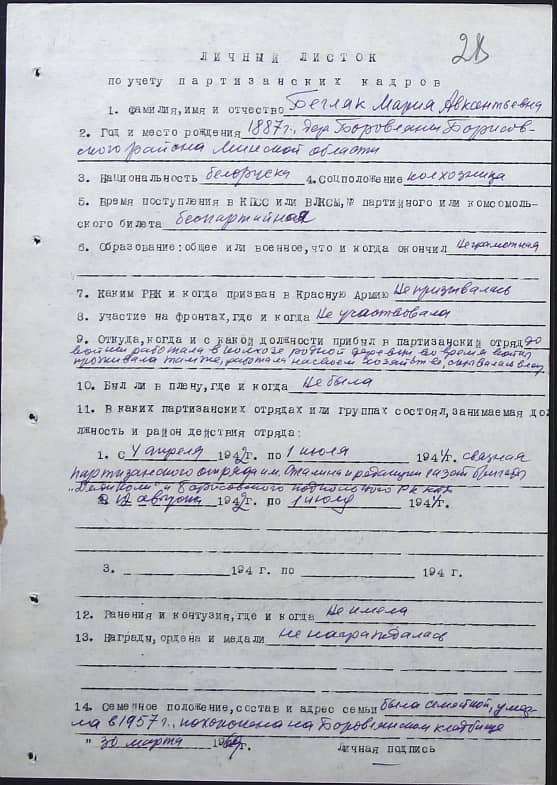 28
ЛИЧНЫЙ ЛИСТОК
по учету партизанских кадров
1. Фамилия, имя и отчество Бегляк Мария Авксентьевна
2. Год и место рождения 1887г., дер Боровляны Борисов-
ского района Минской области
3. Национальность белоруска 4. Соцположение колхозница
5. Время поступления в КПСС или ВЛКСМ, № партийного или комсомоль-
ского билета беспартийная
6. Образование: общее или военное, что и когда окончил неграмотная
7. Каким РВК и когда призван в Красную Армию Не призывалась
8. Участие на фронтах, где и когда Не участвовала
9. Откуда, когда и с какой должности прибыл в партизанский отряд до
войны работала в колхозе родной деревни, во время войны
проживала там же, работала на своем хозяйстве,
10. Был ли в плену, где и когда Не была
11. В каких партизанских отрядах или группах состоял, занимаемая дол
лжность и район действия отряда:
1. С 4 апреля 1942г. по 1 июля 1944г. связная
партизанского отряда им. Сталина и редакции газет бригады
и Борисовского подпольного РК КПБ
2. 12 августа 1942г. по 1 июля 1944г.
3. 194 г. по 194 г.
12. Ранения и контузия, где и когда Не имела
13. Награды, ордена и медали не награждалась
14. Семейное положение, состав и адрес семьи была семейной, умер-
ла в 1957г., похоронена на Боровлянском кладбище
" 30 марта 19 г. Личная подпись